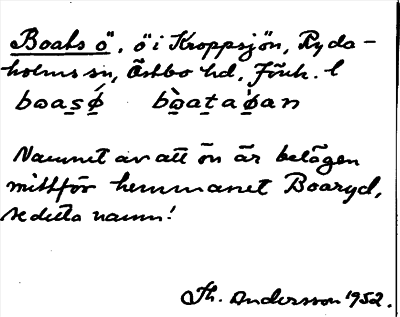 Boats ö, ö i Kroppsjön, Ryda-
holms sn, Östbo hd, Jönk. l
boas̱ǿ̱ bò̱aṯaø̱̀an
Namnet av att ön är belägen
mittför hemmanet Boaryd,
se detta namn!
Th. Andersson 1952.